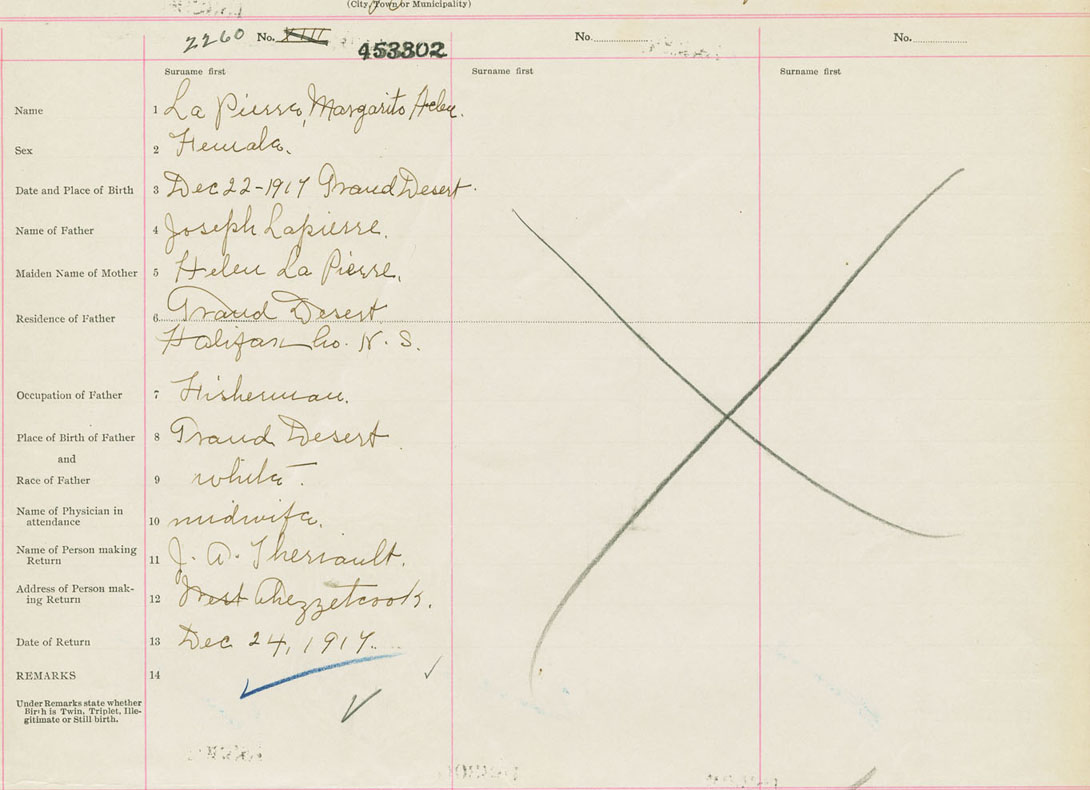 (City, Town or Municipality)
2260 No. XIII 453302 No. No.
Surname first Surname first Surname first
Name 1 La Pierre, Margarite Helen.
Sex 2 Female.
Date and Place of Birth 3 Dec 22-1917 Grand Desert.
Name of Father 4 Joseph Lapierre.
Maiden Name of Mother 5 Helen La Pierre,
Residence of Father 6 Grand Desert
Halifax Co. N. S.
Occupation of Father 7 Fisherman.
Place of Birth of Father 8 Grand Desert
and
Race of Father 9 white.
Name of Physician in
attendance 10 midwife.
Name of Person making
Return 11 J. A. Theriault.
Address of Person mak-
ing Return 12 West Chezzetcook.
Date of Return 13 Dec 24, 1917.
REMARKS 14
Under Remarks state whether
Birth is Twin, Triplet, Ille-
gitimate or Still birth.